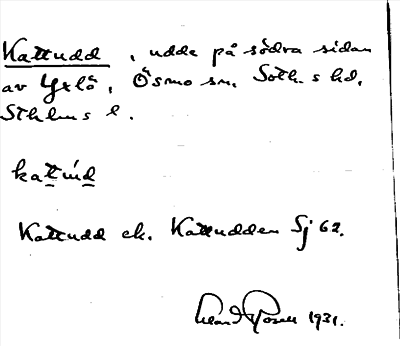 Kattudd, udde på södra sidan
av Yxlö, Ösmo sn. Soth. s hd.
Sthlms l.
kattúd
Kattudd ek. Kattudden Sj 62.
1931.